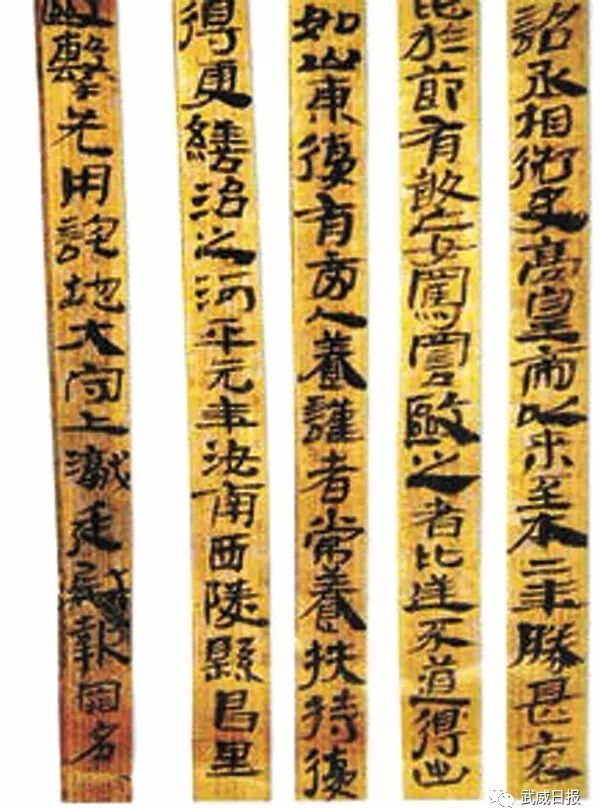 詔丞相御史高皇帝以來至本二年勝甚哀
比於節有敢妄罵詈毆之者比逆不道得出
如山東復有旁人養謹者常養扶持復
得更繕治之河平元年汝南西陵縣昌里
毆擊先用詑地大守上讞廷尉報罪名
武威日报